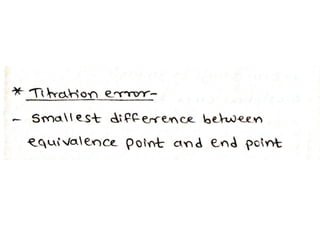 * Titration error-
- Smallest difference between
equivalence point and end point